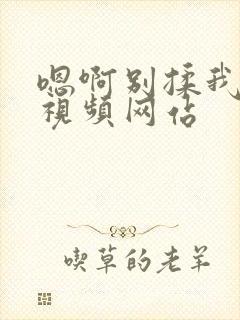 嗯啊别揉我
视频网佔
喫草的老羊